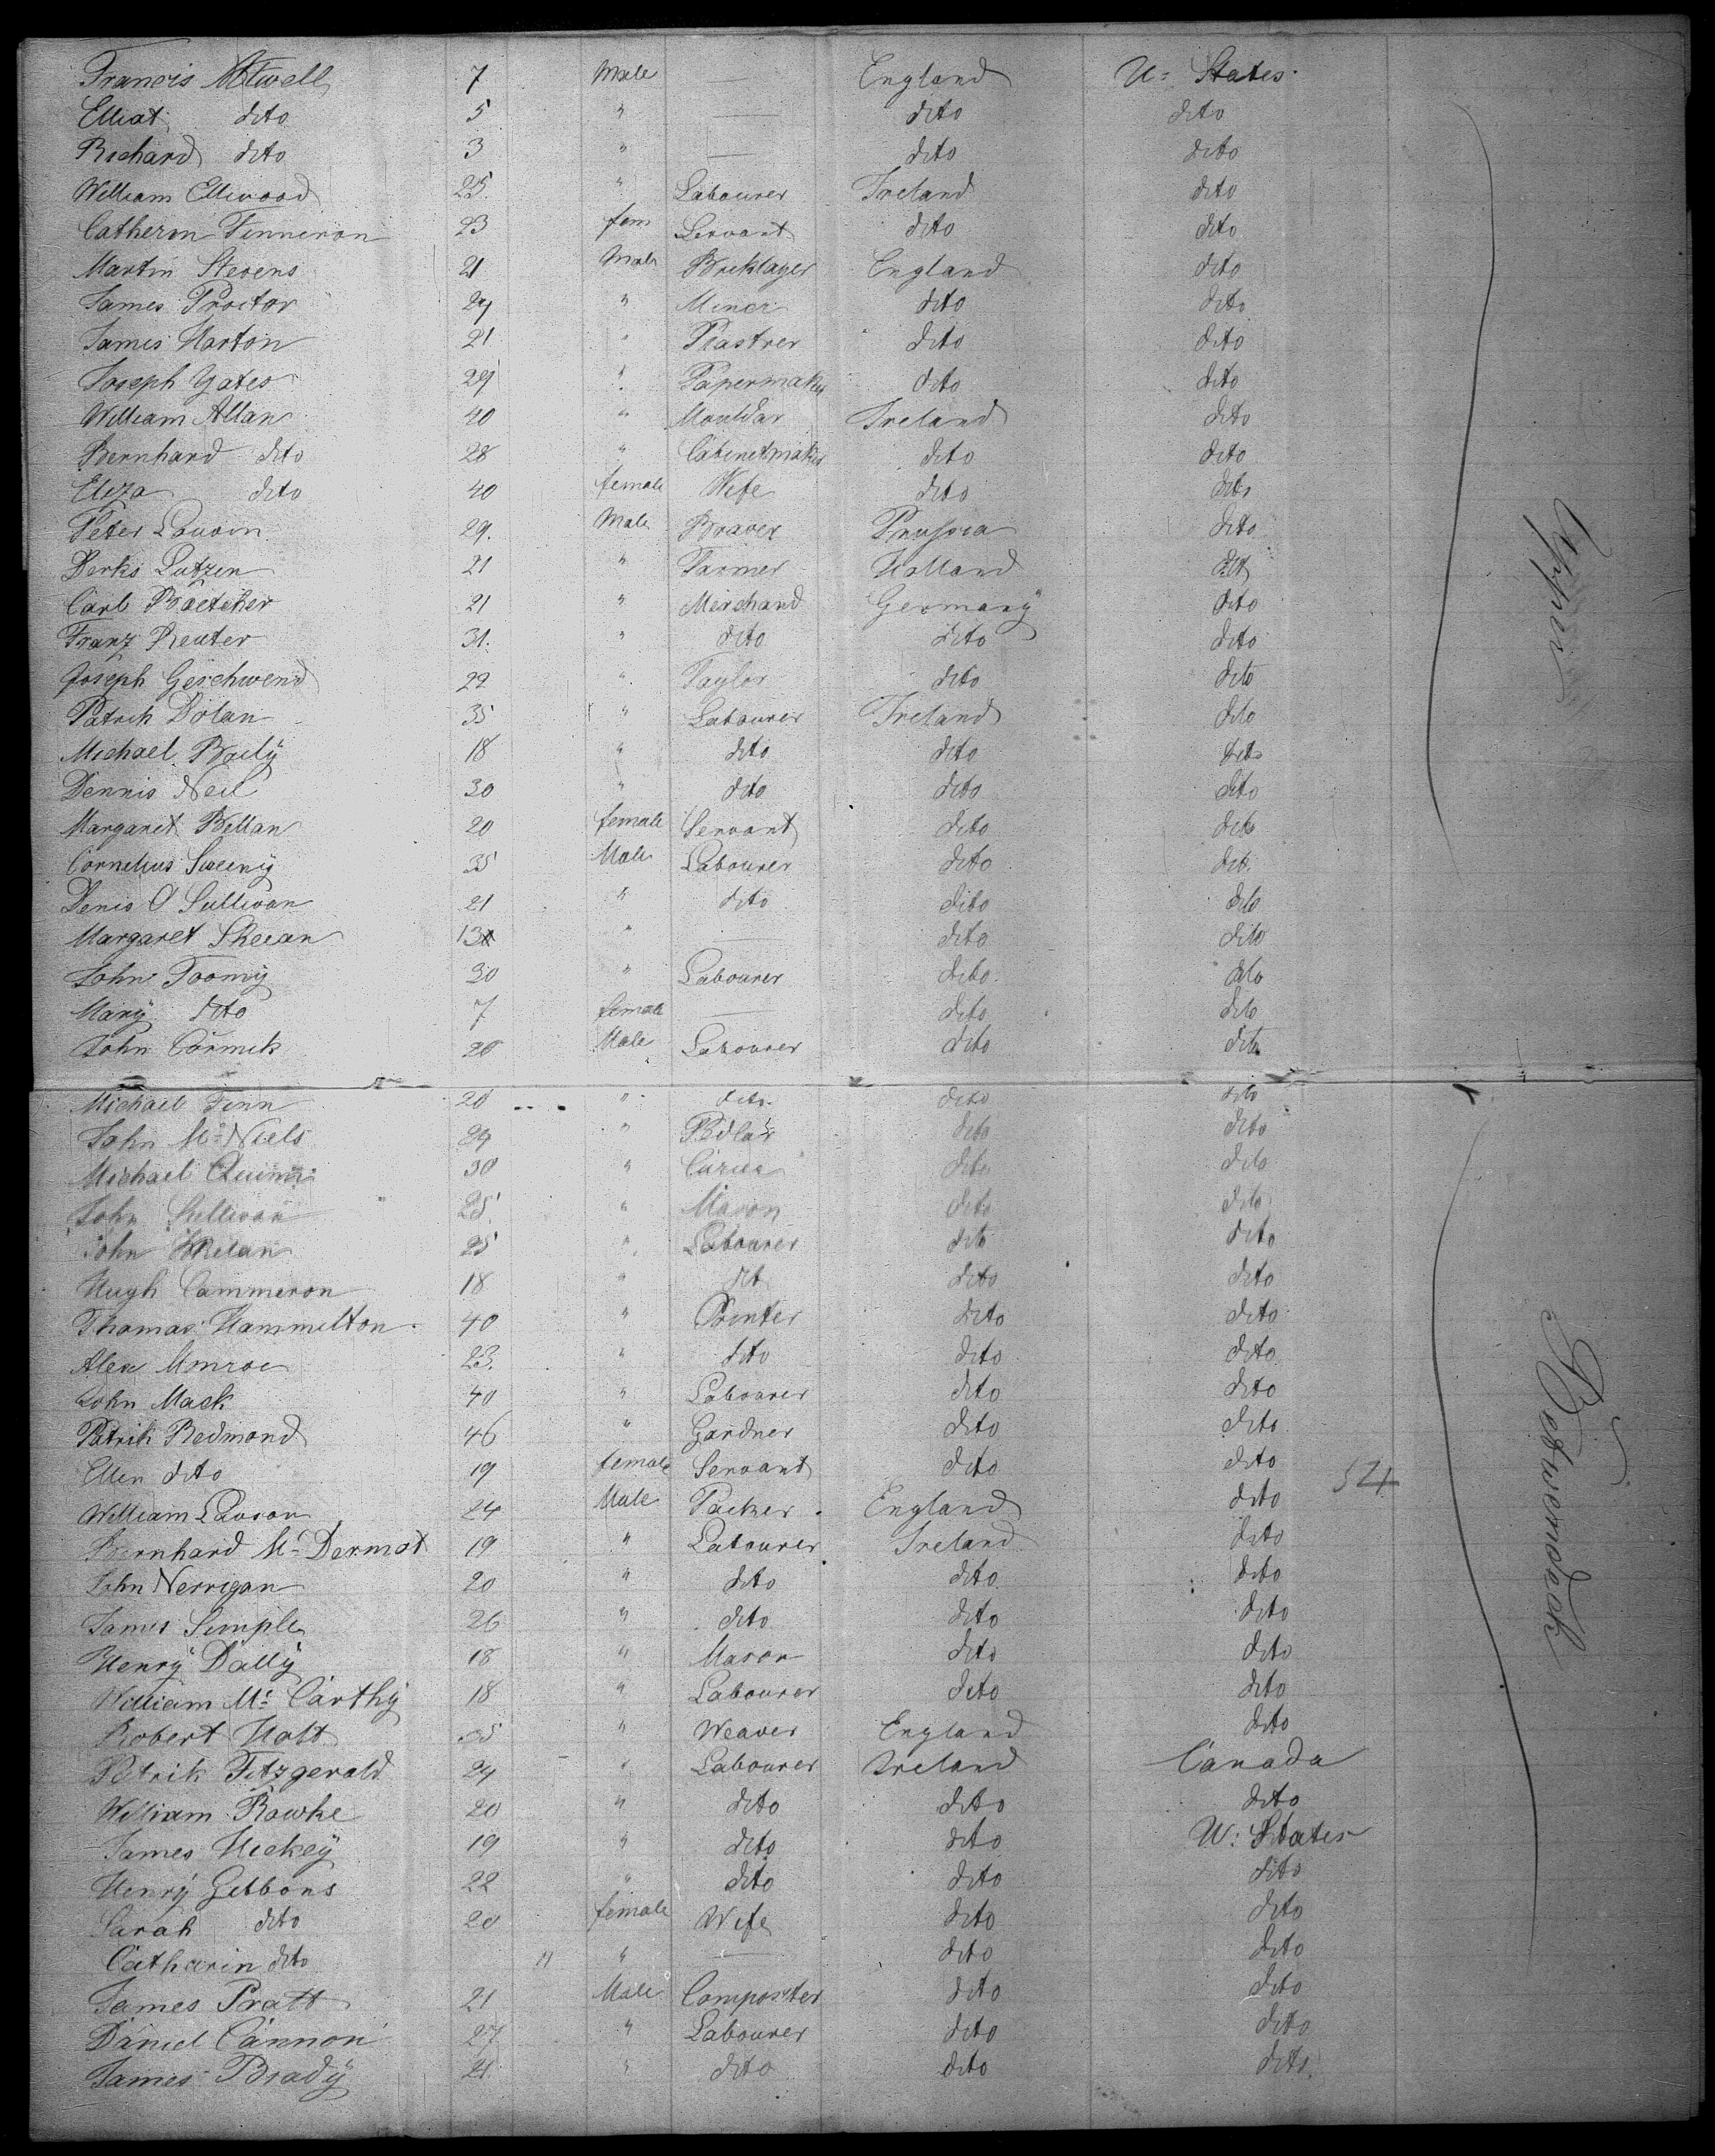 Francis Attwell 7 Male — England U: States
Elliat dito 5 " — dito dito
Richard dito 3 " — dito dito
William Elliwood 25 " Labourer Ireland dito
Catherin Finneron 23 fem Servant dito dito
Martin Stevens 21 Male Bricklayer England dito
James Proctor 24 " Miner dito dito
James Harton 21 " Plastrer dito dito
Joseph Yates 29 " Papermaker dito dito
William Allan 40 " Mouldar Ireland dito
Bernhard dito 28 " Cabinetmaker dito dito
Eliza dito 40 female Wife dito dito
Peter 29. Male Prussia dito
Derks Lutzen 21 " Farmer Holland dito
Carl Boetcher 21 " Merchand Germany dito
Franz Reuter 31. " dito dito dito
Joseph Geschwend 22 " Taylor dito dito
Patrik Dolan 35 " Labourer Ireland dito
Michael Baily 18 " dito dito dito
Dennis Neil 30 " dito dito dito
Margaret Bellan 20 female Servant dito dito
Cornelius Sweeny 35 Male Labourer dito dito
Denis O Sullivan 21 " dito dito dito
Margaret Sheean 13 " — dito dito
John Toomy 30 " Labourer dito dito
Mary dito 7 female — dito dito
John Cormik 20 Male Labourer dito dito
Michael Finn 20 " dito dito dito
John Mc Niels 24 " Pedlar dito dito
Michael Quinn 30 " dito dito
John Sullivan 25 " Mason dito dito
John Whelan 25 " Labourer dito dito
Hugh Cammeron 18 " dito dito dito
Thomas Hammelton 40 " Printer dito dito
Alex Monroe 23. " dito dito dito
John Mack 40 " Labourer dito dito
Patrik Redmond 46 " Gardner dito dito
Ellen dito 19 female Servant dito dito
William Lawson 24 Male Packer England dito 521
Bernhard Mc Dermot 19 " Labourer Ireland dito
John Nerrigan 20 " dito dito dito
James Semple 26 " dito dito dito
Henry Dally 18 " Mason dito dito
William Mc Carthy 18 " Labourer dito dito
Robert Holt 35 " Weaver England dito
Patrik Fitzgerald 24 " Labourer Ireland Canada
William Rowke 20 " dito dito dito
James Hickey 19 " dito dito U: States
Henry Gebbons 22 " dito dito dito
Sarah dito 20 female Wife dito dito
Catharin dito 11 " — dito dito
James Pratt 21 Male Composter dito dito
Daniel Cannon 27 " Labourer dito dito
James Brady 21. " dito dito dito
Upper
Betweendeck